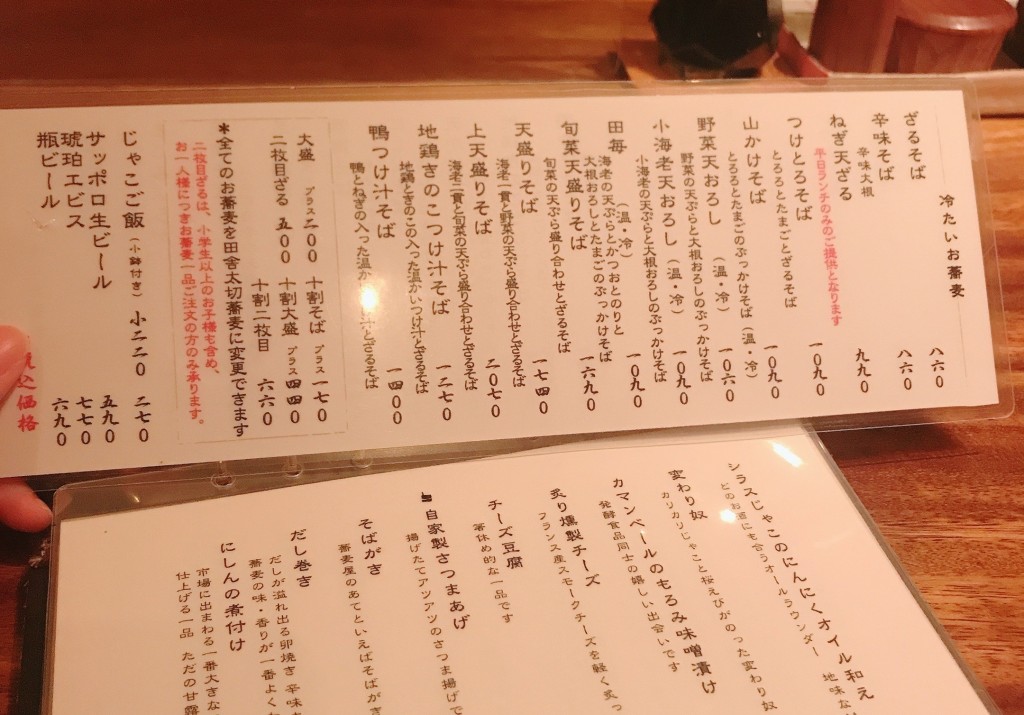 冷たいお蕎麦
ざるそば 八六〇
辛味そば 八六〇
辛味大根
ねぎ天ざる 九九〇
平日ランチのみのご提供となります
つけとろそば 一〇九〇
とろろとたまごとざるそば
山かけそば 一〇九〇
とろろとたまごのぶっかけそば（温・冷）
野菜天おろし（温・冷） 一〇六〇
野菜の天ぷらと大根おろしのぶっかけそば
小海老天おろし（温・冷） 一〇九〇
小海老の天ぷらと大根おろしのぶっかけそば
田毎（温・冷） 一〇九〇
海老の天ぷらとかつおとのりと
大根おろしとたまごのぶっかけそば 一六九〇
旬菜天盛りそば
旬菜の天ぷら盛り合わせとざるそば
天盛りそば 一七四〇
海老一貫と野菜の天ぷら盛り合わせとざるそば
上天盛りそば 二〇七〇
海老二貫と旬菜の天ぷら盛り合わせとざるそば
地鶏きのこつけ汁そば 一二七〇
地鶏ときのこの入った温かいつけ汁とざるそば
鴨つけ汁そば 一四〇〇
鴨とねぎの入った温か汁とざるそば
大盛 プラス二〇〇 十割そば プラス一七〇
二枚目ざる 五〇〇 十割大盛 プラス四四〇
十割二枚目 六六〇
＊全てのお蕎麦を田舎太切蕎麦に変更できます
二枚目ざるは、小学生以上のお子様も含め、
お一人様につきお蕎麦一品ご注文の方のみ承ります。
じゃこご飯（小鉢付き） 小二二〇 二七〇
サッポロ生ビール 五九〇
琥珀エビス 七七〇
瓶ビール 六九〇
込価格
シラスじゃこのにんにくオイル和え
どのお酒にも合うオールラウンダー 地味な
変わり奴
カリカリじゃこと桜えびがのった変わり奴
カマンベールのもろみ味噌漬け
発酵食品同士の嬉しい出会いです
炙り燻製チーズ
フランス産スモークチーズを軽く炙っ
チーズ豆腐
箸休め的な一品です
自家製さつまあげ
揚げたてアツアツのさつま揚げで
そばがき
蕎麦屋のあてといえばそばがき
だし巻き
だしが溢れ出る卵焼き 辛味
蕎麦の味・香りが一番よく
にしんの煮付け
市場に出まわる一番大きな
仕上げる一品 ただの甘露